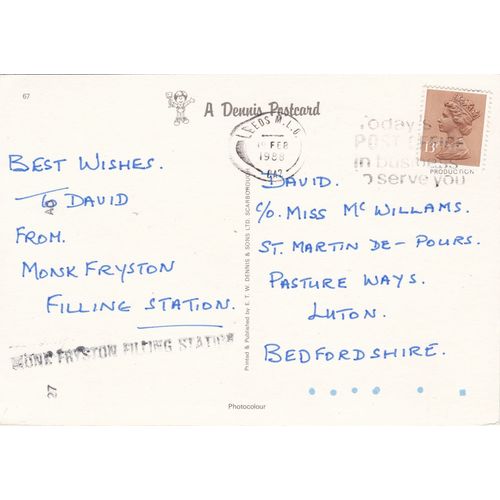 67
A Dennis Postcard
LEEDS M.L.O.
FEB
1988
Today's
POST OFFICE
in business
to serve you
PRODUCTION
BEST WISHES.
TO DAVID
FROM.
MONK FRYSTON
FILLING STATION.
MONK FRYSTON FILLING STATION
27
Printed & Published by E. T. W. DENNIS & SONS LTD. SCARBOROUGH
DAVID.
C/O. MISS MC WILLAMS.
ST. MARTIN DE-POURS.
PASTURE WAYS.
LUTON.
BEDFORDSHIRE.
Photocolour